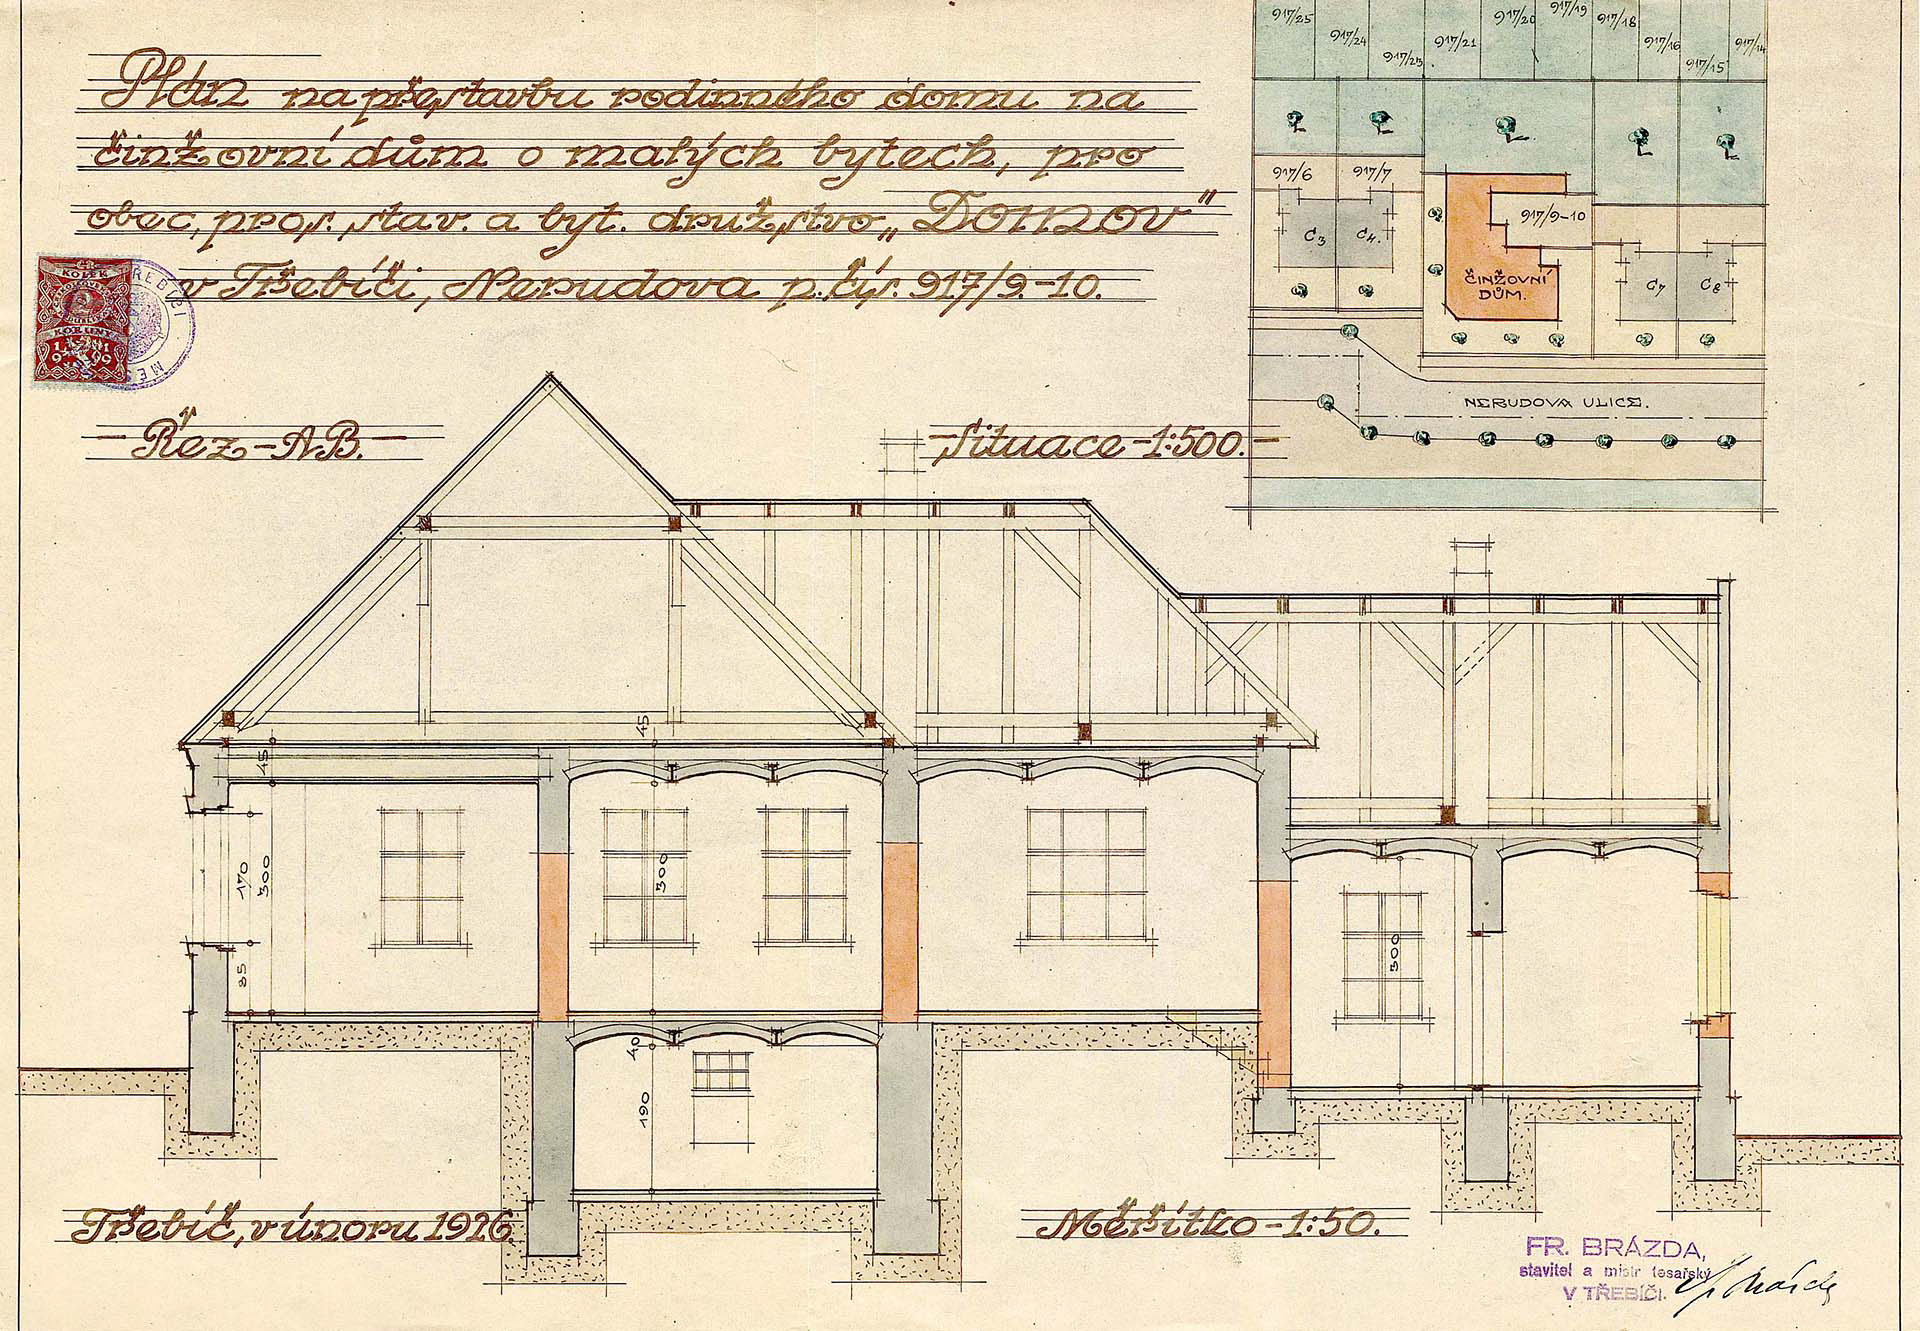 Plán na přestavbu rodinného domu na
činžovní dům o malých bytech, pro
obec, pros. stav. a byt. družstvo „DOMOV"
v Třebíči, Nerudova p. čís. 917/9.-10.
KOLEK
KORUNY
1 1
9 99
TŘEBÍČI
MĚS
Řez-AB.
Situace-1:500.
917/25
917/24
917/23
917/21
917/20
917/19
917/18
917/16
917/15
917/14
917/6
917/7
917/9-10
C3
C4.
ČINŽOVNÍ
DŮM.
C7
C8
NERUDOVA ULICE.
45
45
170
300
85
300
300
40
190
Třebíč, v únoru 1926
Měřítko-1:50.
FR. BRÁZDA,
stavitel a mistr tesařský
V TŘEBÍČI.